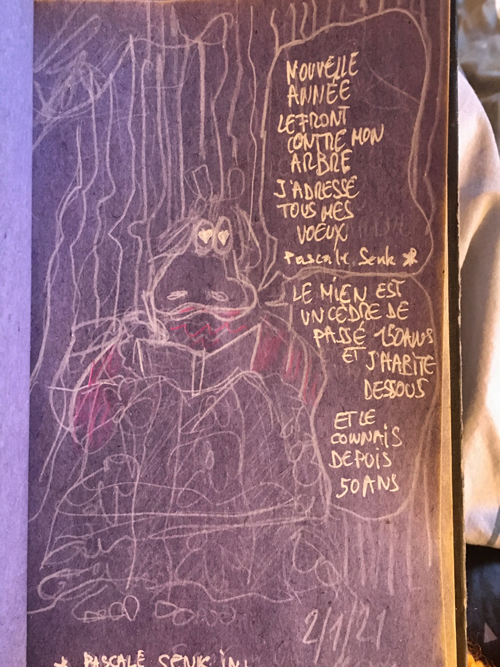 NOUVELLE
ANNÉE
LE FRONT
CONTRE MON
ARBRE
J'ADRESSE
TOUS MES
VOEUX
Pascale Senk *
LE MIEN EST
UN CÈDRE DE
PASSÉ 150 ANS
ET J'HABITE
DESSOUS
ET LE
CONNAIS
DEPUIS
50 ANS
2/1/21
* PASCALE SENK IN